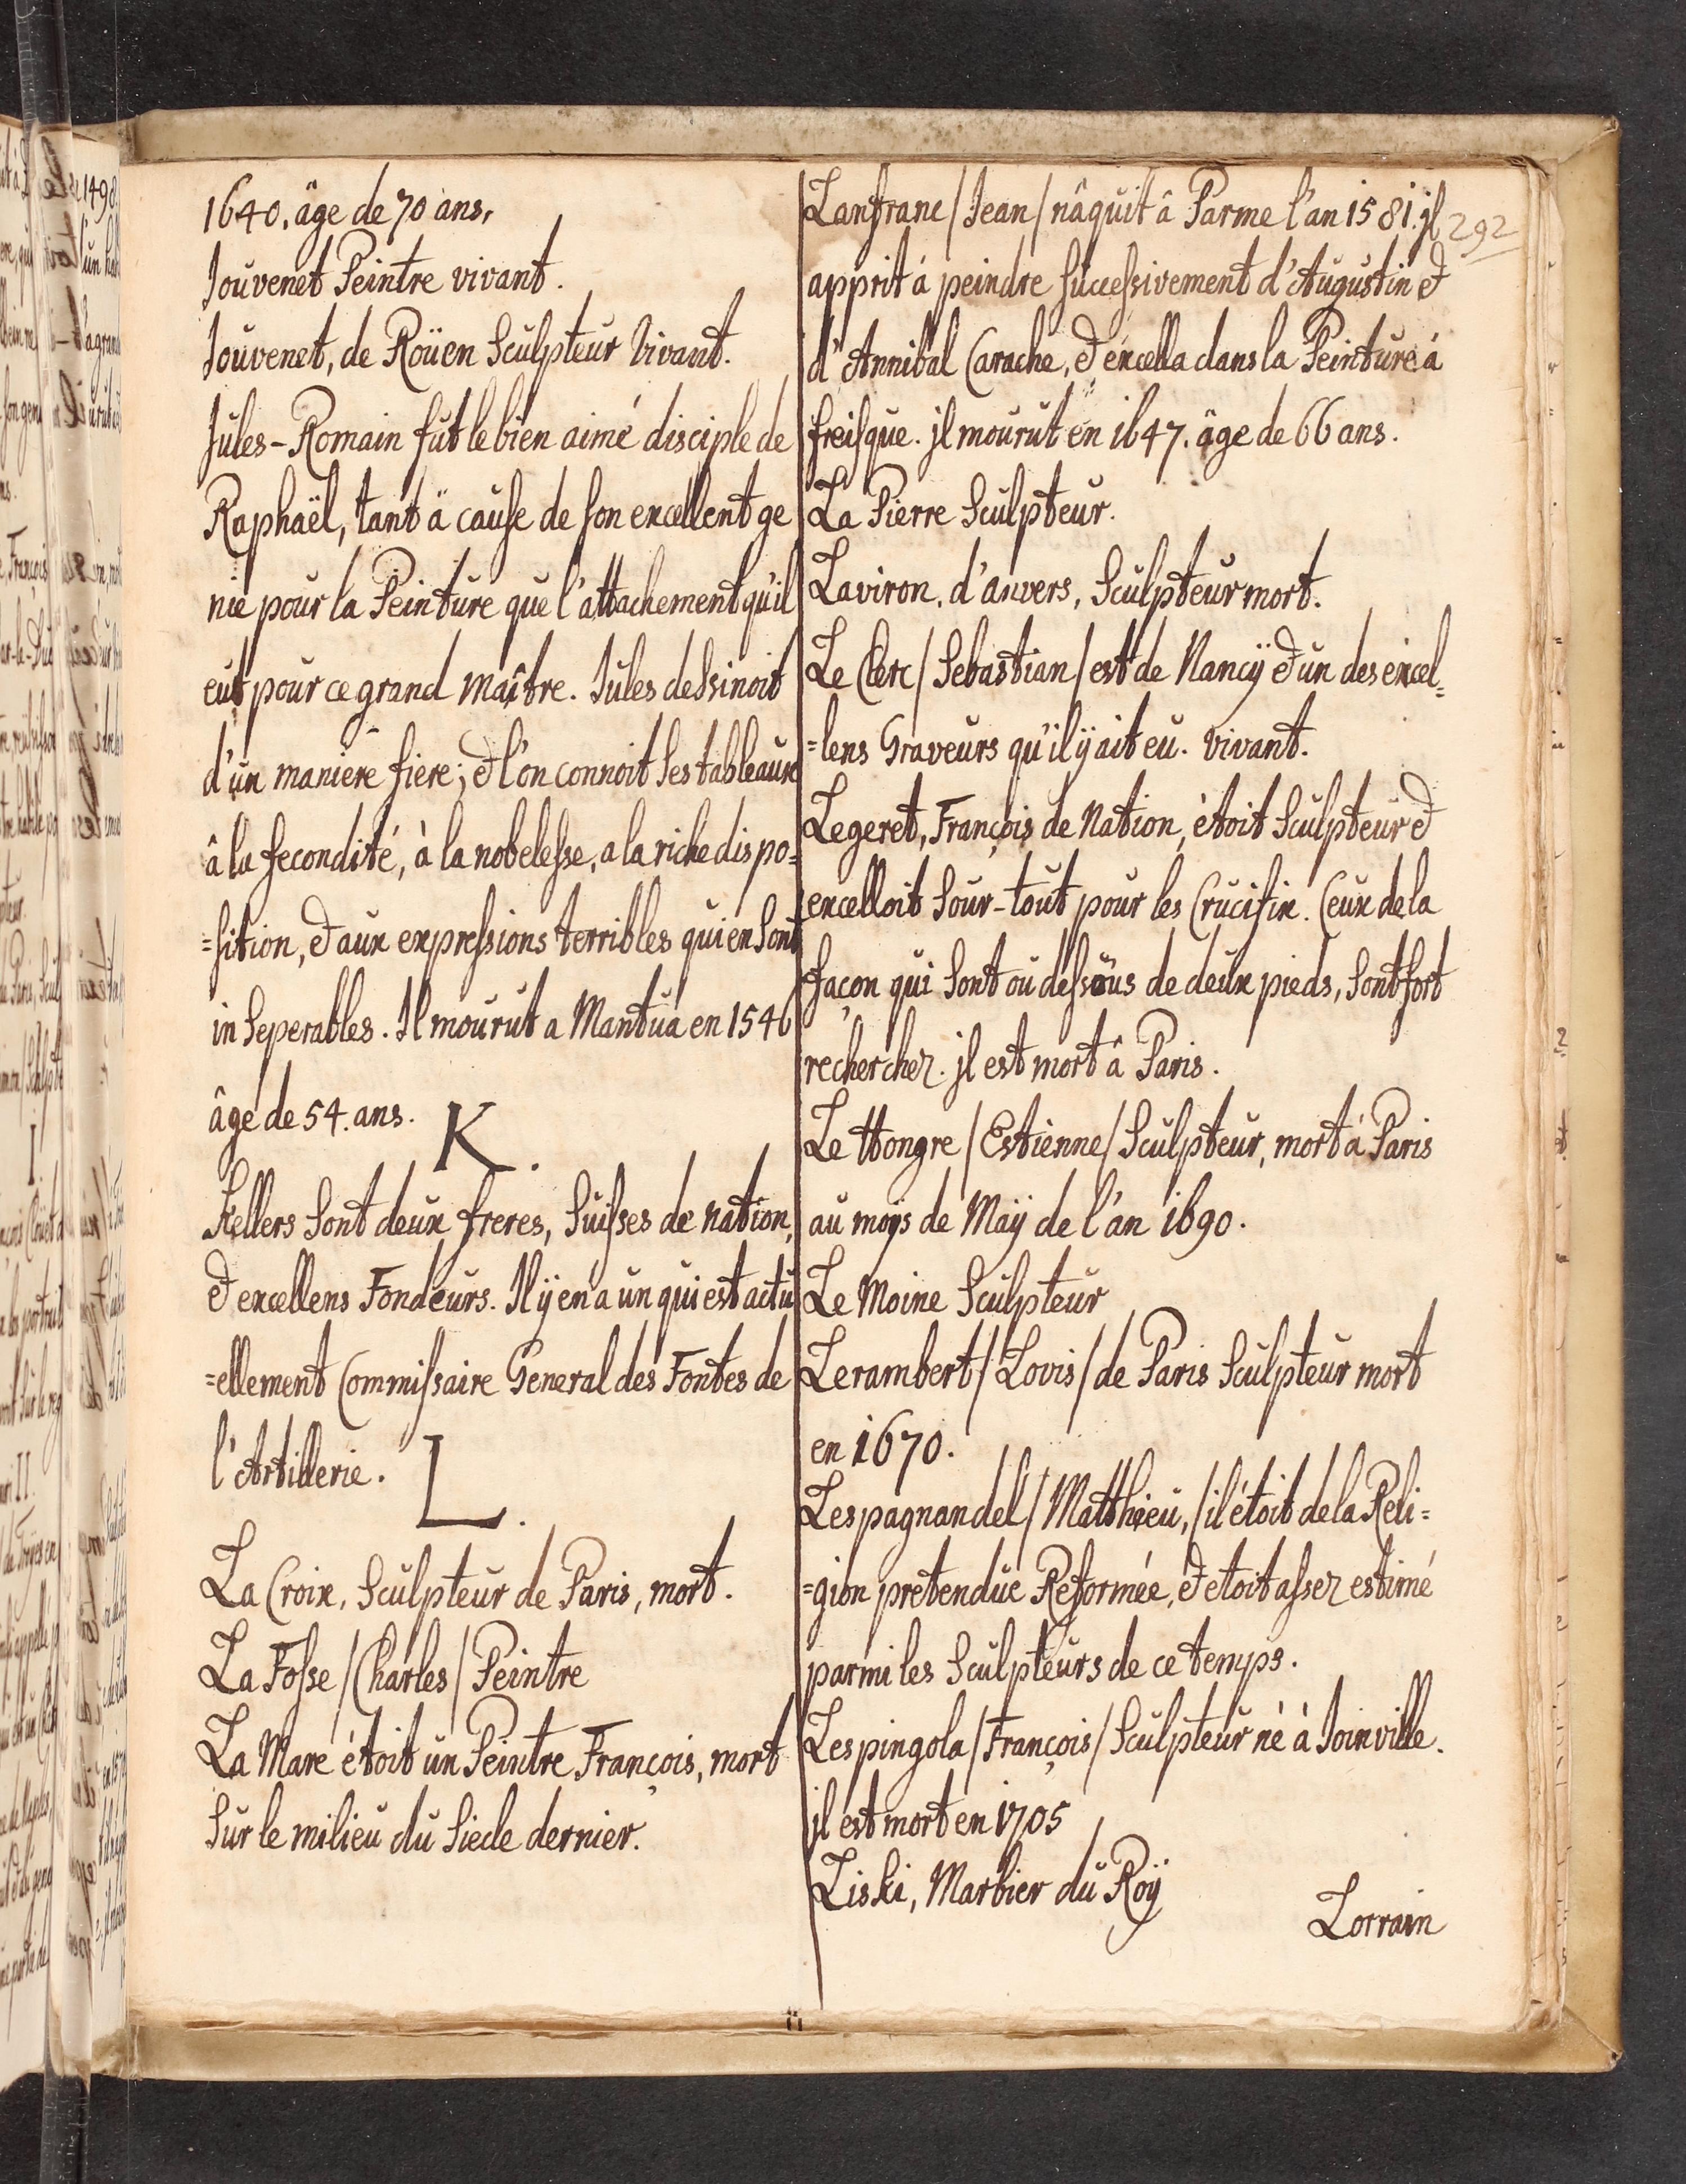 1640. âge de 70 ans.
Jouvenet Peintre vivant.
Jouvenet, de Roüen Sculpteur Vivant.
Jules-Romain fut le bien aimé disciple de
Raphaël, tant ä cause de son excellent ge
nie pour la Peinture que l'attachement qu'il
eut pour ce grand Maître. Jules dessinoit
d'un maniere fiere; & l'on connoit ses tableaux
â la fecondité, à la nobelesse, a la riche dispo=
=sition, & aux expressions terribles qui en sont
in seperables. Il mourut a Mantua en 1546
âge de 54. ans.
K.
Kellers sont deux freres, Suisses de nation,
& excellens Fondeurs. Il ÿ en a un qui est actu
=ellement Commissaire General des Fontes de
l'Artillerie.
L.
La Croix, Sculpteur de Paris, mort.
La Fosse /Charles/ Peintre
La Mare étoit un Peintre François, mort
Sur le milieu du Siecle dernier.
Lanfranc /Jean/ nâquit â Parme l'an 1581. jl
292
apprit á peindre successivement d'Augustin &
d'Annibal Carache, & excella dans la Peinture á
freisque. jl mourut en 1647. âge de 66 ans.
La Pierre Sculpteur.
Laviron, d'anvers, Sculpteur mort.
Le Clerc /Sebastian/ est de Nancÿ & un des excel=
=lens Graveurs qu'il ÿ ait eu. Vivant.
Legeret, François de Nation, étoit Sculpteur &
excelloit Sour-tout pour les Crucifix. Ceux de la
façon qui sont ou dessous de deux pieds, sont fort
recherchez. jl est mort â Paris.
Le Hongre /Estiènne/ Sculpteur, mort á Paris
au moys de Maÿ de l'an 1690.
Le Moine Sculpteur
Lerambert /Lovis/ de Paris Sculpteur mort
en 1670.
Lespagnandel /Matthieu,/ il étoit de la Reli=
=gion pretendue Reformée, & etoit assez estimé
parmi les Sculpteurs de ce temps.
Lespingola /François/ Sculpteur né à Joinville.
jl est mort en 1705
Liski, Marbier du Roÿ
Lorrain